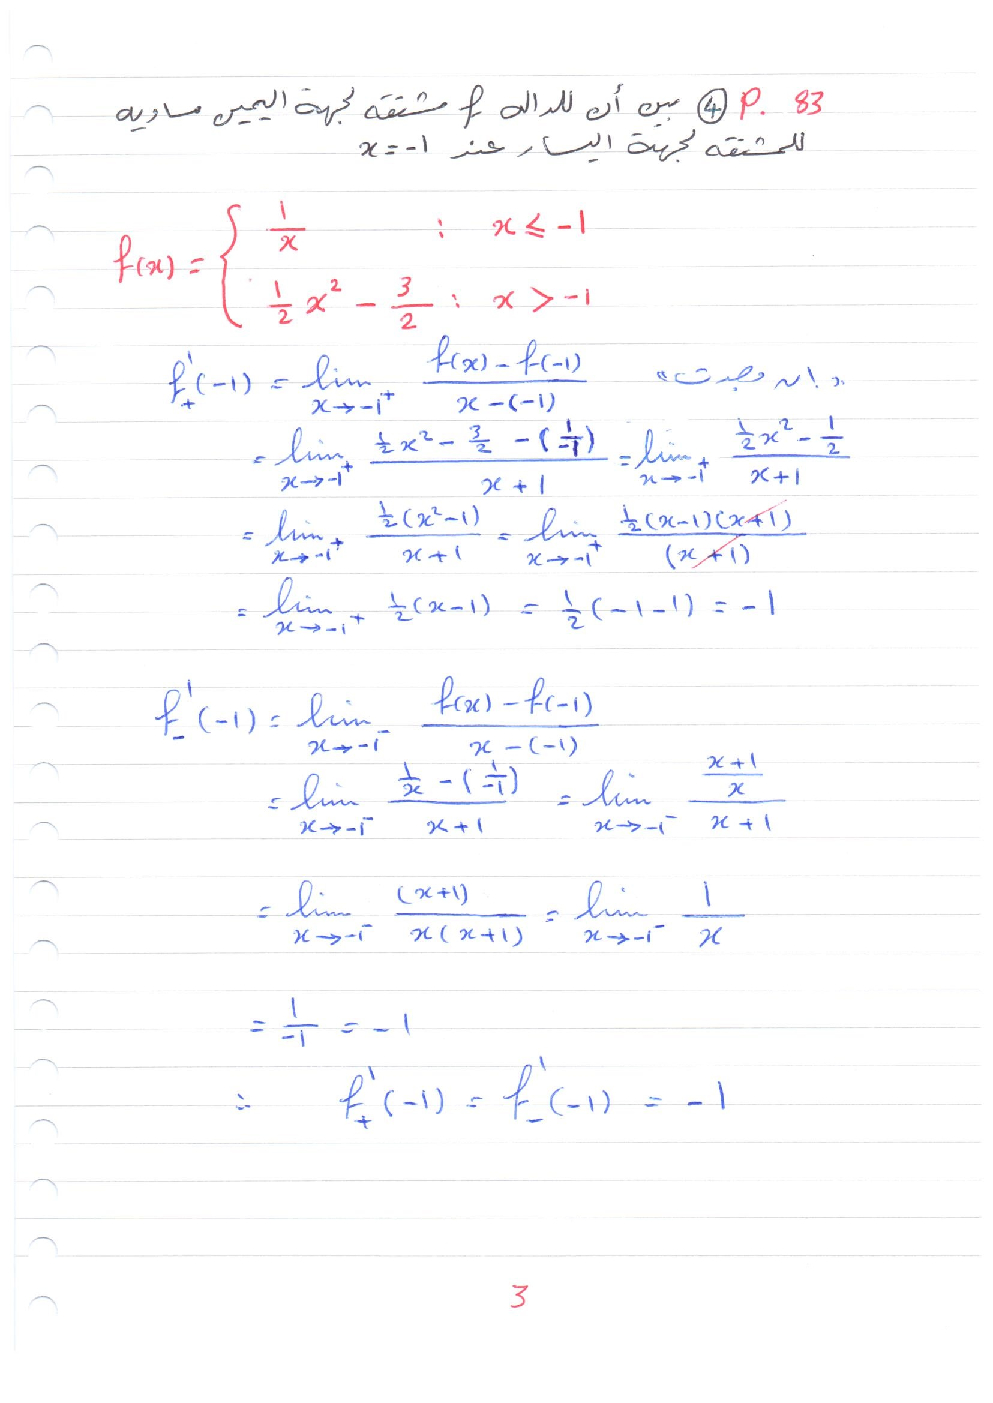 P. 83 ④ بين أن للداله f مشتقه لجهة اليمين مساويه
للمشتقه لجهة اليسار عند x = -1
f(x) = { 1/x : x ⩽ -1
1/2 x² - 3/2 : x > -1
f₊'(-1) = lim x→-1⁺ (f(x) - f(-1))/(x - (-1)) "إن وجدت"
= lim x→-1⁺ (1/2 x² - 3/2 - (1/-1))/(x + 1) = lim x→-1⁺ (1/2 x² - 1/2)/(x + 1)
= lim x→-1⁺ (1/2 (x² - 1))/(x + 1) = lim x→-1⁺ (1/2 (x-1)(x+1))/((x+1))
= lim x→-1⁺ 1/2 (x-1) = 1/2 (-1-1) = -1
f₋'(-1) = lim x→-1⁻ (f(x) - f(-1))/(x - (-1))
= lim x→-1⁻ (1/x - (1/-1))/(x + 1) = lim x→-1⁻ ((x+1)/x)/(x + 1)
= lim x→-1⁻ (x+1)/(x(x+1)) = lim x→-1⁻ 1/x
= 1/-1 = -1
∴ f₊'(-1) = f₋'(-1) = -1
3